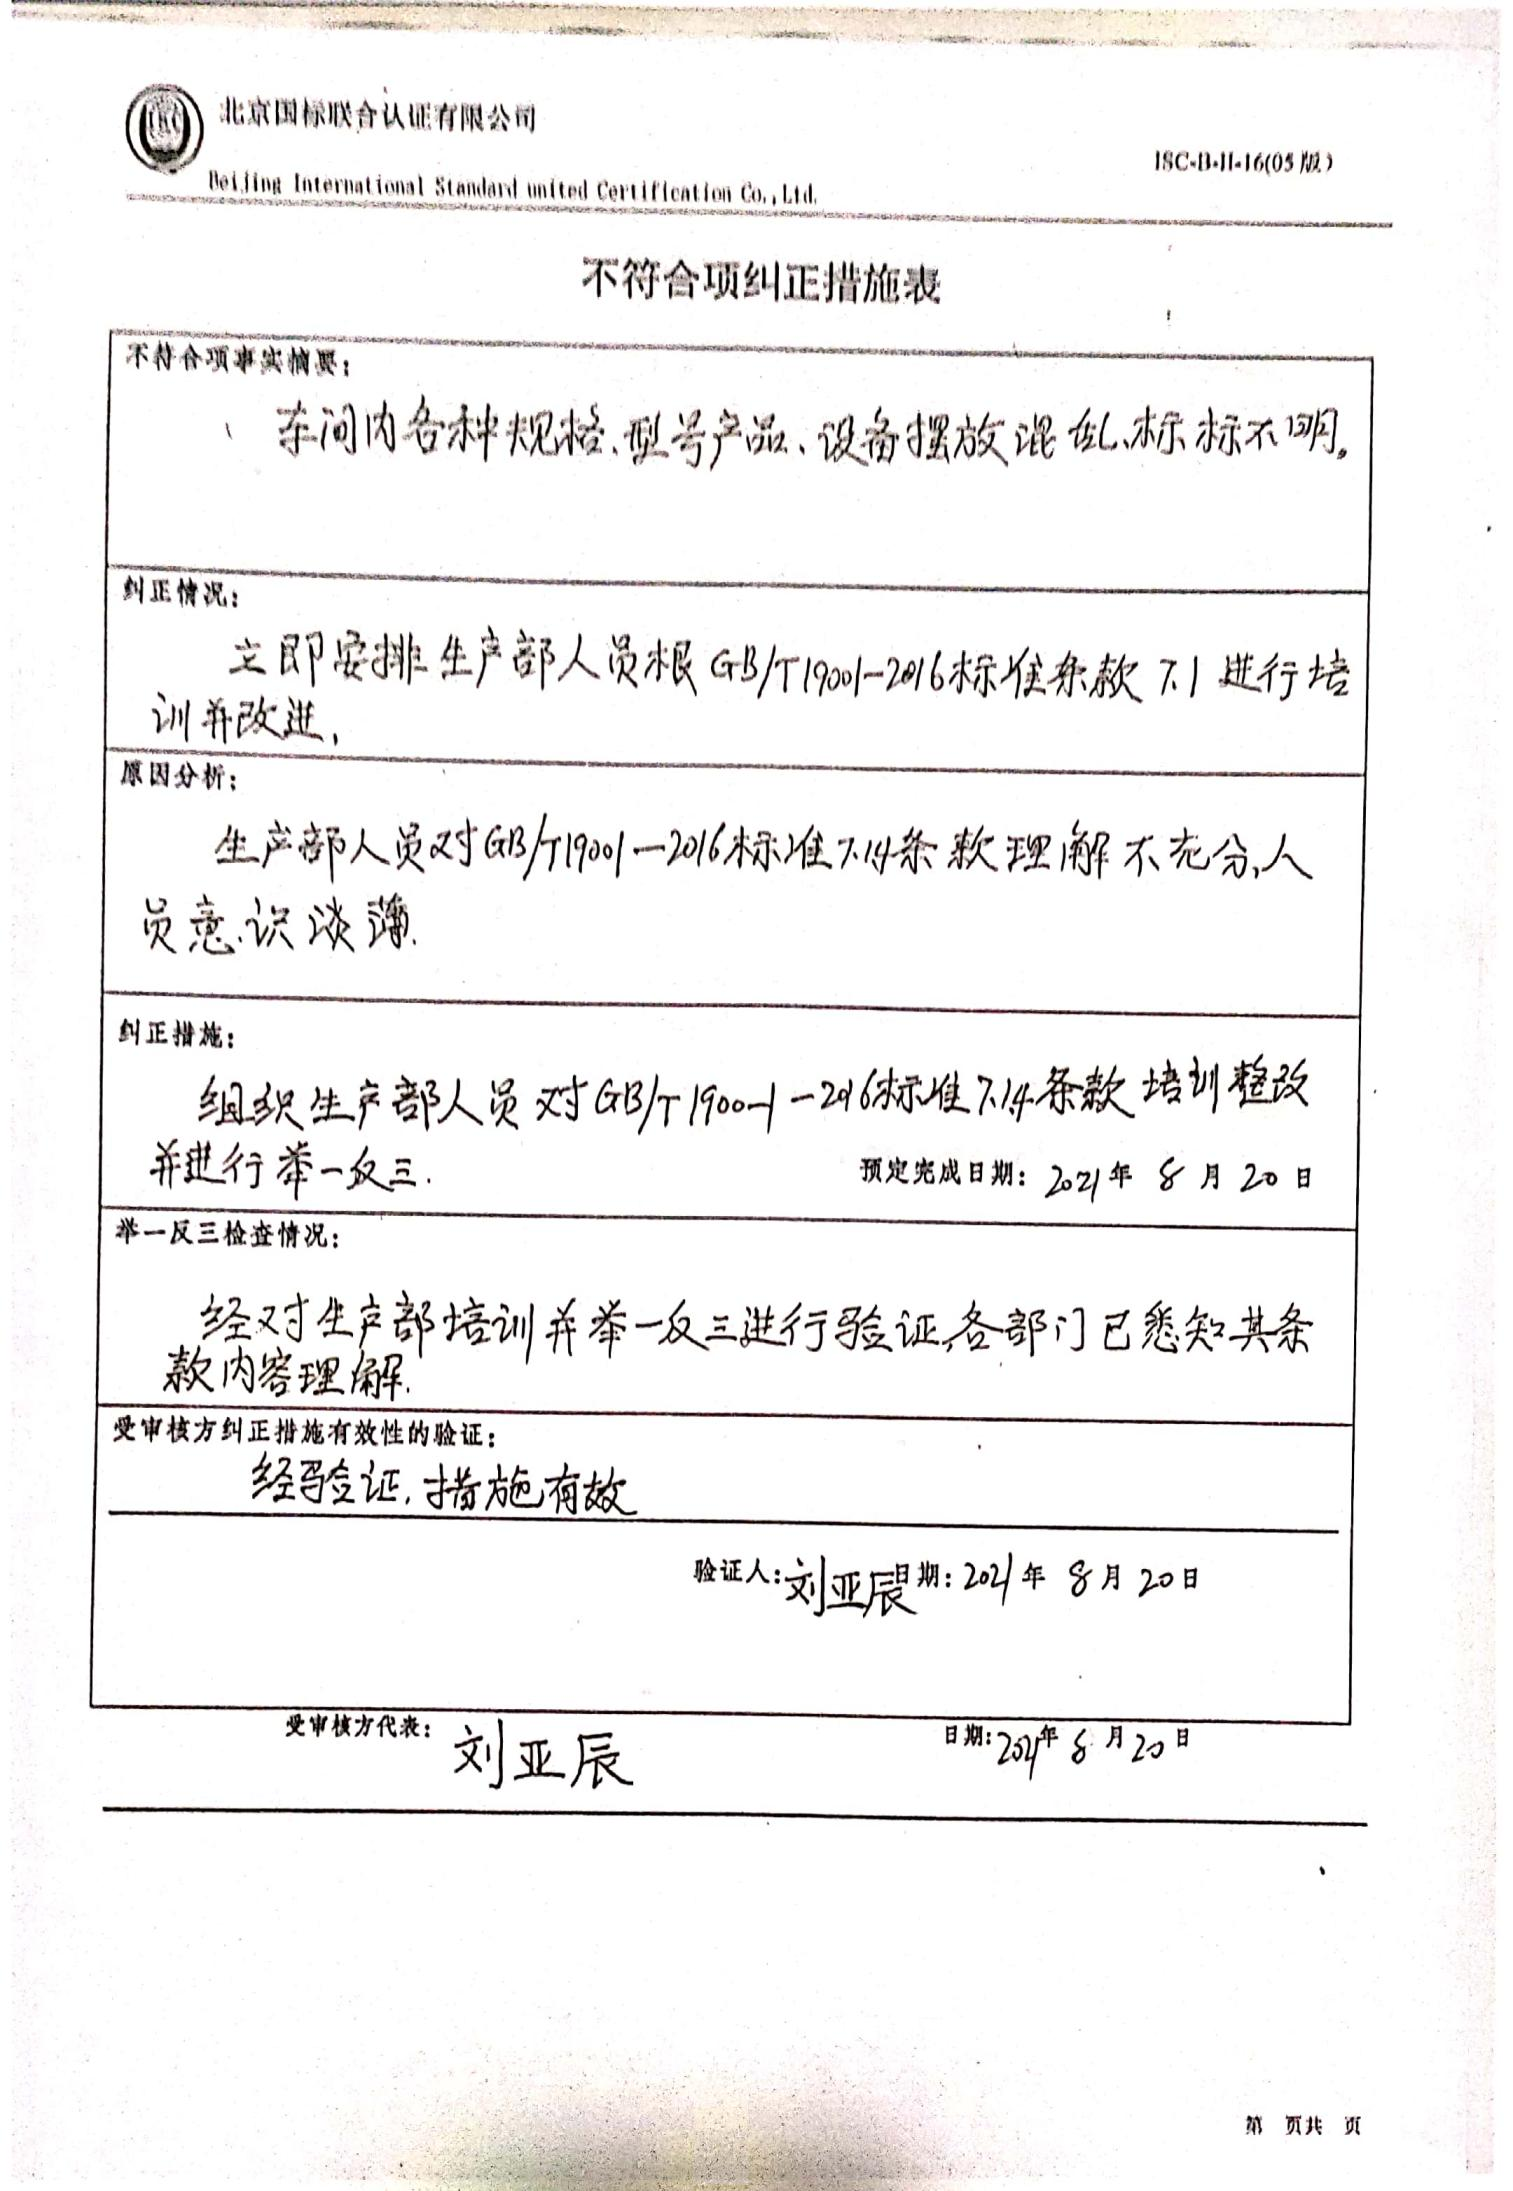 北京国标联合认证有限公司
ISC-B-II-16(05版)
Beijing International Standard united Certification Co., Ltd.
不符合项纠正措施表
不符合项事实摘要:
车间内各种规格、型号产品、设备摆放混乱、标标不明。
纠正情况:
立即安排生产部人员根GB/T19001-2016标准条款7.1进行培
训并改进,
原因分析:
生产部人员对GB/T19001-2016标准7.1.4条款理解不充分,人
员意识淡薄.
纠正措施:
组织生产部人员对GB/T19001-2016标准7.1.4条款培训整改
并进行举一反三.
预定完成日期: 2021年 8月20日
举一反三检查情况:
经对生产部培训并举一反三进行验证,各部门已悉知其条
款内容理解.
受审核方纠正措施有效性的验证:
经验证,措施有效
验证人:刘亚辰日期:2021年 8月20日
受审核方代表: 刘亚辰 日期:2021年8月20日
第 页共 页